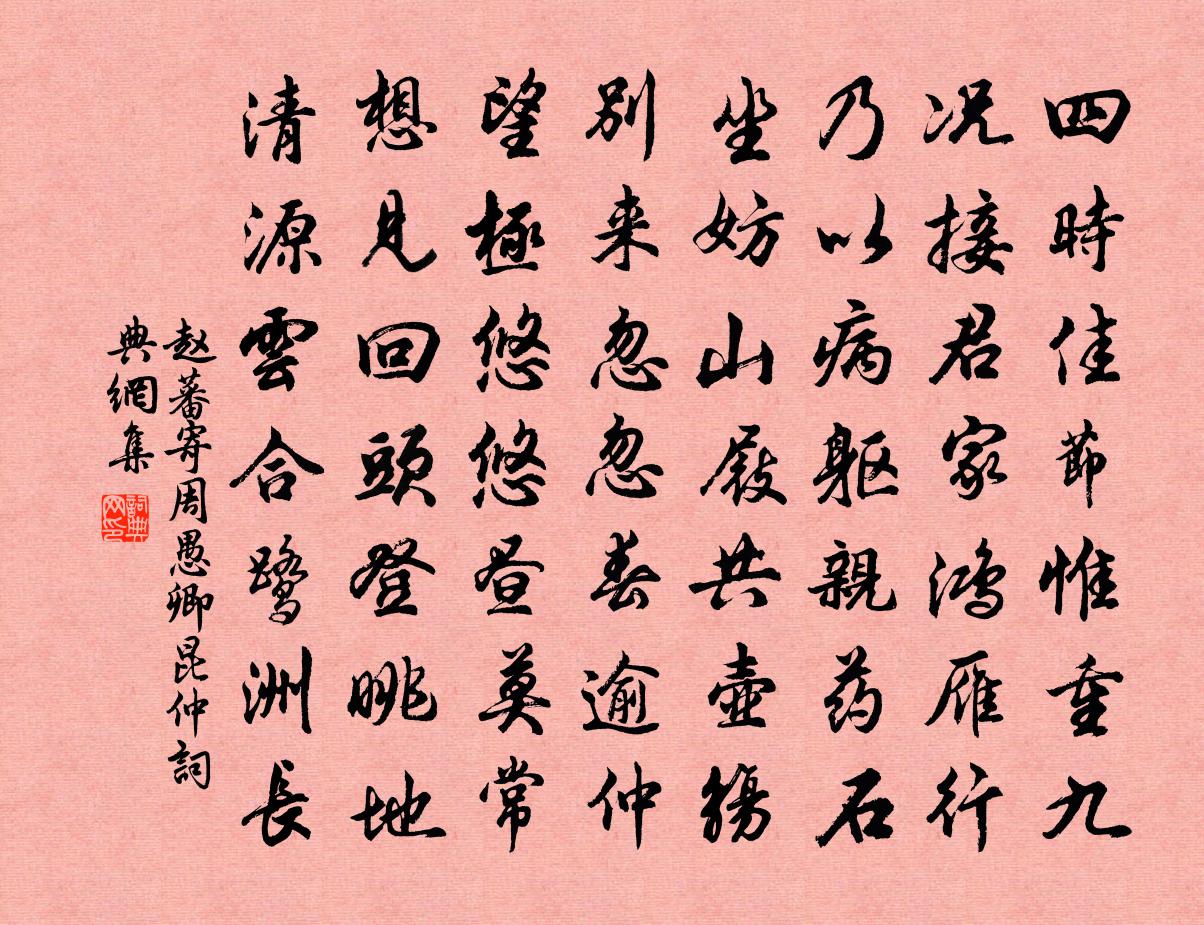 四時佳節惟重九
况接君家鴻雁行
乃以病軀親药石
坐妨山屐共壺觴
別来忽忽春逾仲
望極悠悠晝莫常
想見回頭登眺地
清源雲合鷺洲長
赵蕃寄周愚卿昆仲詞
典網集
詞典網印